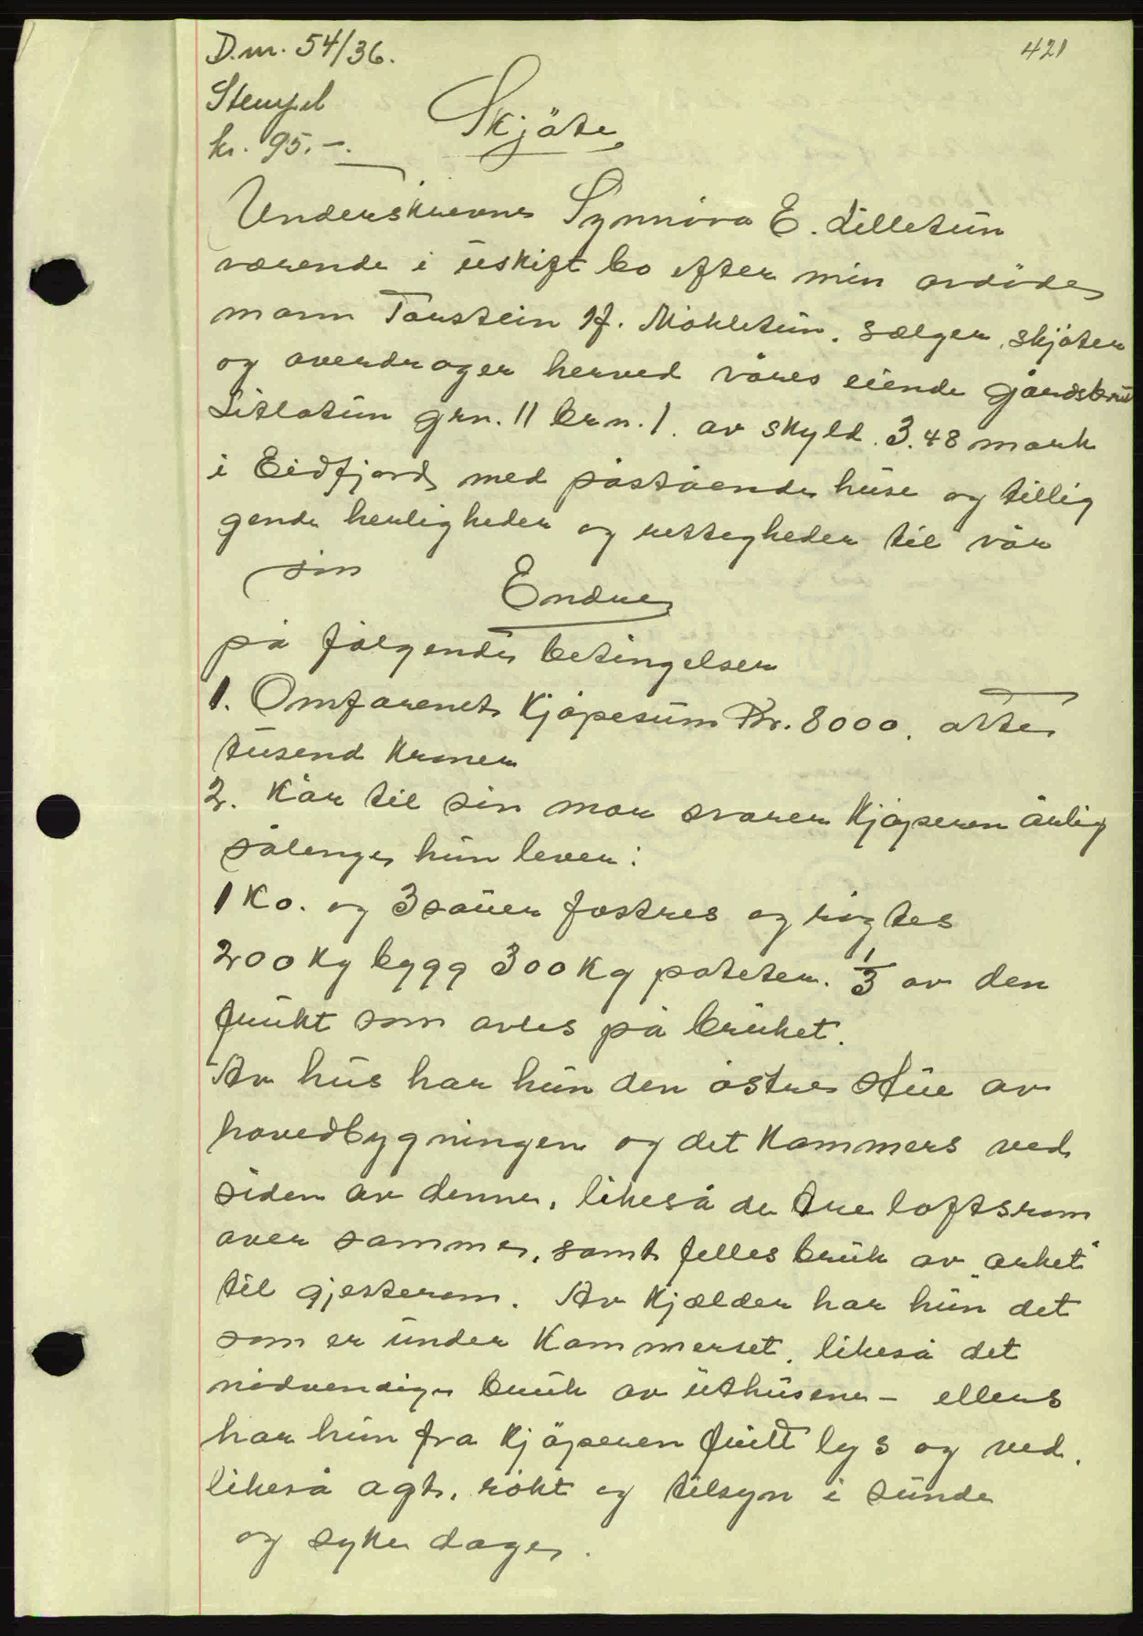 D.nr. 54/36.
421
Stempel
kr. 95.-.
Skjöte
Underskrevne Synnöva E. Lilletun
værende i uskift bo efter min avdöde
mann Torstein H. Möhletun, sælger, skjöter
og overdrager herved våres eiende gårdsbruk
Litlatun grn. 11 brn. 1. av skyld. 3.48 mark
i Eidfjord med påstående huse og tillig
gende herligheder og rettegheder til vår
sön
Endre
på fölgende betingelser
1. Omforenet Kjöpesum Kr. 8000. otte
tusend Kroner
2. Kår til sin mor svarer Kjöperen årlig
sålenge hun lever:
1 Ko. og 3 sauer fostres og rögtes
200 kg bygg 300 Kg poteter. 1/3 av den
frukt som avles på bruket.
Av hus har hun den östre stue av
hovedbygningen og det Kammers ved
siden av denne, likeså de tre loftsrom
over samme, samt felles bruk av „arket"
til gjesterom. Av Kjælder har hun det
som er under Kammerset, likeså det
nödvendige bruk av uthusene - ellers
har hun fra Kjöperen fritt lys og ved.
likeså agt, rökt og tilsyn i sunde
og syke dage.